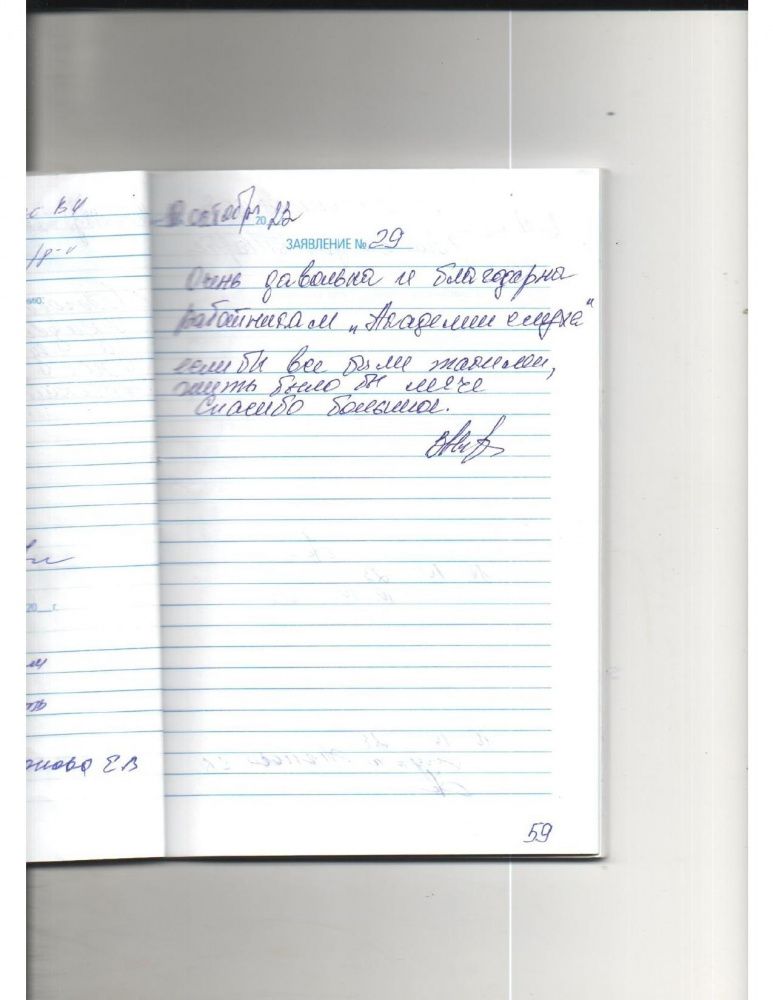 октября 2023
ЗАЯВЛЕНИЕ № 29
Очень давольна и благодарна
работникам „Академии слуха"
если бы все были такими,
жить было бы легче
Спасибо большое.
20__г.
Е В
59